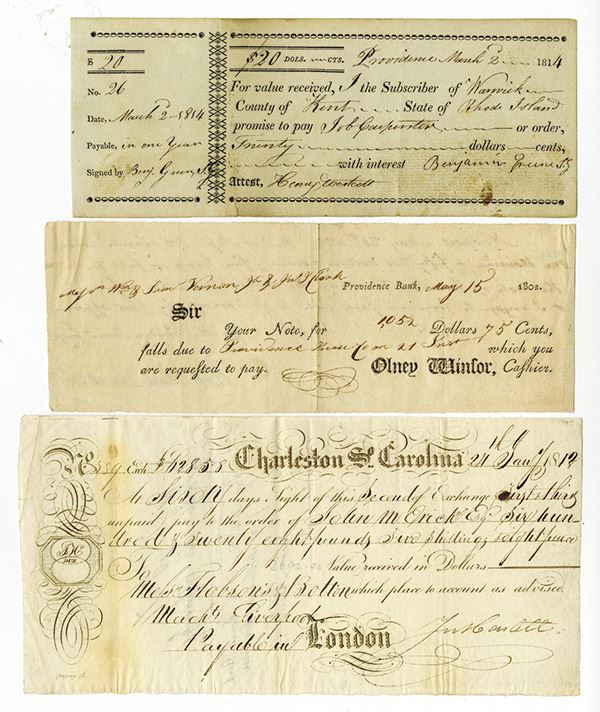 $ 20
No. 26
Date, March 2 - 1814
Payable, in one Year
Signed by Benj. Greene
$20 DOLS. CTS. Providence March 2 1814
For value received, I the Subscriber of Warwick
County of Kent State of Rhode Island
promise to pay Job Carpenter or order,
Twenty dollars cents,
with interest Benjamin Greene
Attest, Henry
Wm & Saml Vernon Jr & Jno Clark
Providence Bank, May 15 1802.
Sir
Your Note, for 1,052 Dollars 75 Cents,
falls due to Providence on 21 Inst which you
are requested to pay. Olney Winsor, Cashier.
No Charleston So. Carolina 24 Jany 1812
At Sixty days Sight of this Second of Exchange first & third
unpaid pay to the order of John M Esqr Six hun-
dred & twenty eight pounds five shillings & eight pence
Value received in Dollars
To
Messrs Hobsons & Bolton which place to account as advised
Mercht Liverpool
Payable in London